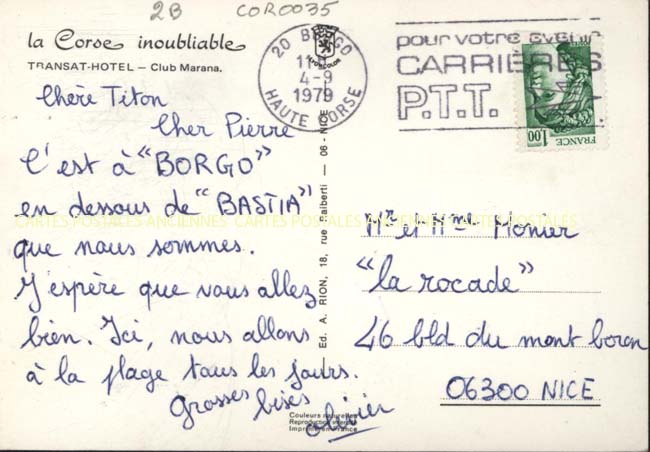 2B COR0035
la Corse inoubliable
TRANSAT-HOTEL — Club Marana.
20 BORGO
4-9
1979
HAUTE CORSE
pour votre avenir
CARRIÈRES
P.T.T.
1,00
FRANCE
Chère Titon
Cher Pierre
C'est à "BORGO"
en dessous de "BASTIA"
que nous sommes.
J'espère que vous allez
bien. Ici, nous allons
à la plage tous les jours.
Grosses bises
olivier
Mr et Mme Monier
"la rocade"
46 bld du mont boron
06300 NICE
Ed. A. RION, 18, rue Dalberti — 06 - NICE
Couleurs naturelles
Reproduction interdite
Imprimé en France
CARTES POSTALES ANCIENNES CARTES POSTALES ANCIENNES CARTES POSTALES ANCIENNES